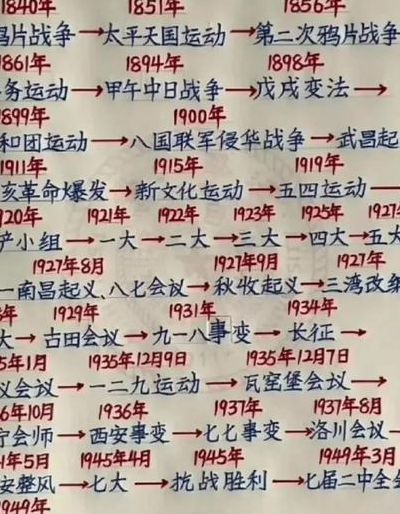 1840年 1851年 1856年
鸦片战争→太平天国运动→第二次鸦片战争
1861年 1894年 1898年
务运动→甲午中日战争→戊戌变法→
1899年 1900年
和团运动→八国联军侵华战争→武昌起
1911年 1915年 1919年
亥革命爆发→新文化运动→五四运动→
920年 1921年 1922年 1923年 1925年 1927
产小组→一大→二大→三大→四大→五大
1927年8月 1927年9月 1927年
南昌起义、八七会议→秋收起义→三湾改编
年 1929年 1931年 1934年
大→古田会议→九一八事变→长征→
5年1月 1935年12月9日 1935年12月7日
义会议→一二九运动→瓦窑堡会议→
6年10月 1936年 1937年 1937年8月
宁会师→西安事变→七七事变→洛川会议→
1年5月 1945年4月 1945年 1949年3月
安整风→七大→抗战胜利→七届二中全会
1949年